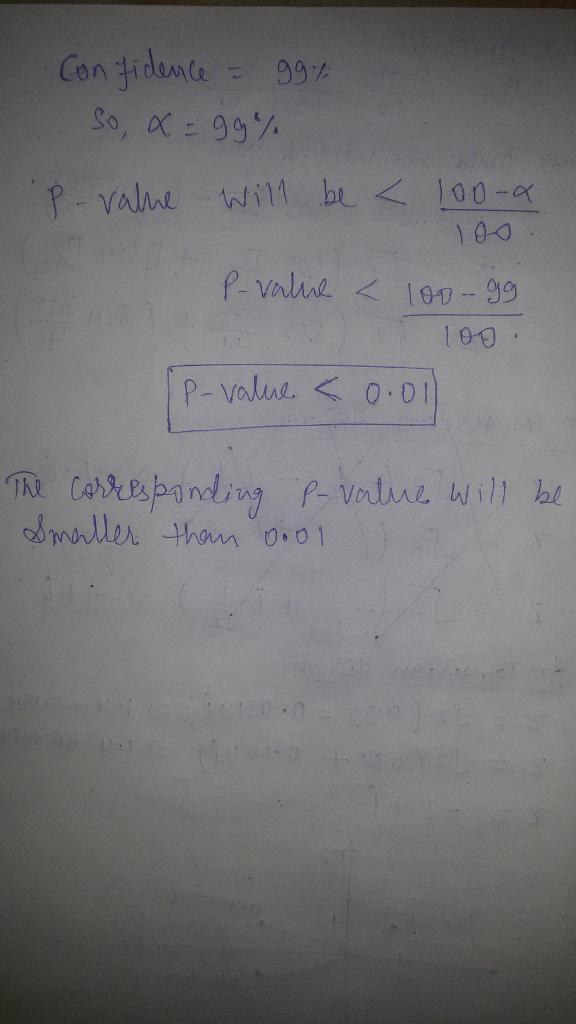 Confidence = 99%
So, α = 99%
P-value will be < 100-α
100.
P-value < 100-99
100.
P-value < 0.01
The corresponding P-value will be
Smaller than 0.01